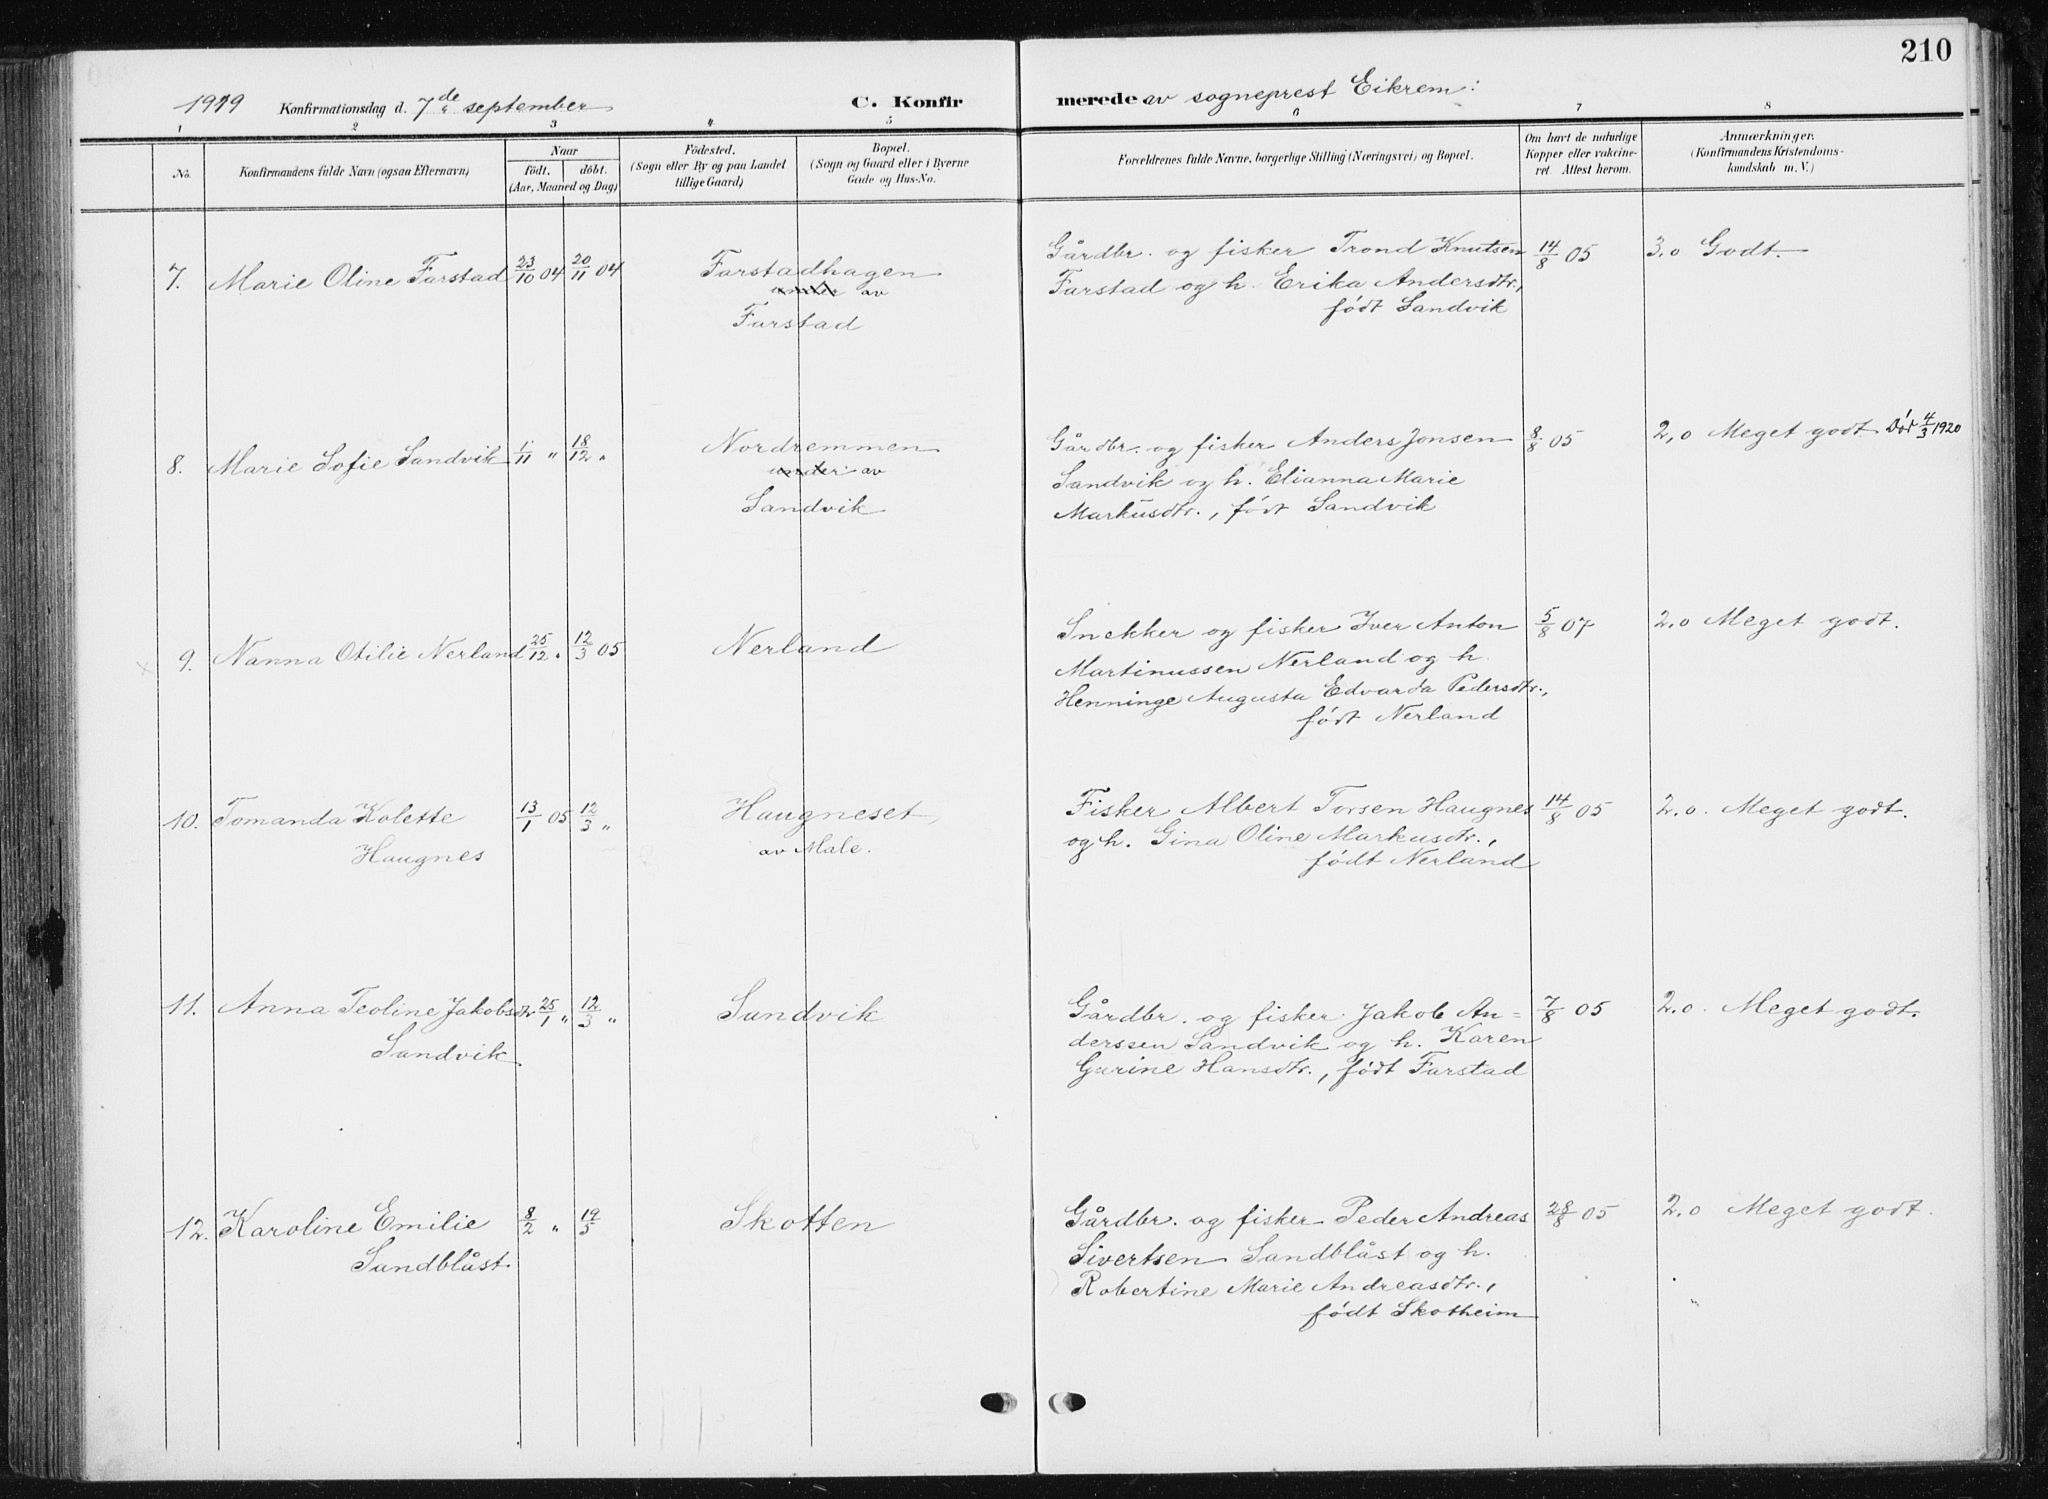 210
1919 Konfirmationsdag d. 7de september C. Konfirmerede av sogneprest Eikrem:
1 2 3 4 5 6 7 8
No.
Konfirmandens fulde Navn (ogsaa Efternavn)
Naar
født. døbt.
(Aar, Maaned og Dag)
Fødested.
(Sogn eller By og paa Landet
tillige Gaard)
Bopæl.
(Sogn og Gaard eller i Byerne
Gade og Hus-No.
Forældrenes fulde Navne, borgerlige Stilling (Næringsvei) og Bopæl.
Om havt de naturlige
Kopper eller vakcine-
ret. Attest herom.
Anmærkninger.
(Konfirmandens Kristendoms-
kundskab m. V.)
7. Marie Oline Farstad 23/10 04 20/11 04 Farstadhagen
under av
Farstad
Gårdbr. og fisker Trond Knutsen 14/8 05 3,0 Godt.
Farstad og h. Erika Andersdtr.,
født Sandvik
8. Marie Sofie Sandvik 1/11 " 18/12 " Nordremmen
under av
Sandvik
Gårdbr. og fisker Anders Jonsen 8/8 05 2,0 Meget godt Død 4/3 1920
Sandvik og h. Elianna Marie
Markusdtr., født Sandvik
x 9. Nanna Otilie Nerland 25/12 " 12/3 05 Nerland
Snekker og fisker Iver Anton 5/8 07 2,0 Meget godt.
Martinussen Nerland og h.
Henninge Augusta Edvarda Pedersdtr.,
født Nerland
10. Tomanda Kolette 13/1 05 12/3 " Haugneset,
Haugnes av Male.
Fisker Albert Torsen Haugnes 14/8 05 2.0. Meget godt.
og h. Gina Oline Markusdtr.,
født Nerland
11. Anna Teoline Jakobsdtr 25/1 " 12/3 " Sandvik
Sandvik
Gårdbr. og fisker Jakob An= 7/8 05 2.0. Meget godt.
derssen Sandvik og h. Karen
Gurine Hansdtr., født Farstad
12. Karoline Emilie 8/2 " 19/5 Skotten
Sandblåst.
Gårdbr. og fisker Peder Andreas 28/8 05 2,0 Meget godt.
Sivertsen Sandblåst og h.
Robertine Marie Andreasdtr.,
født Skotheim